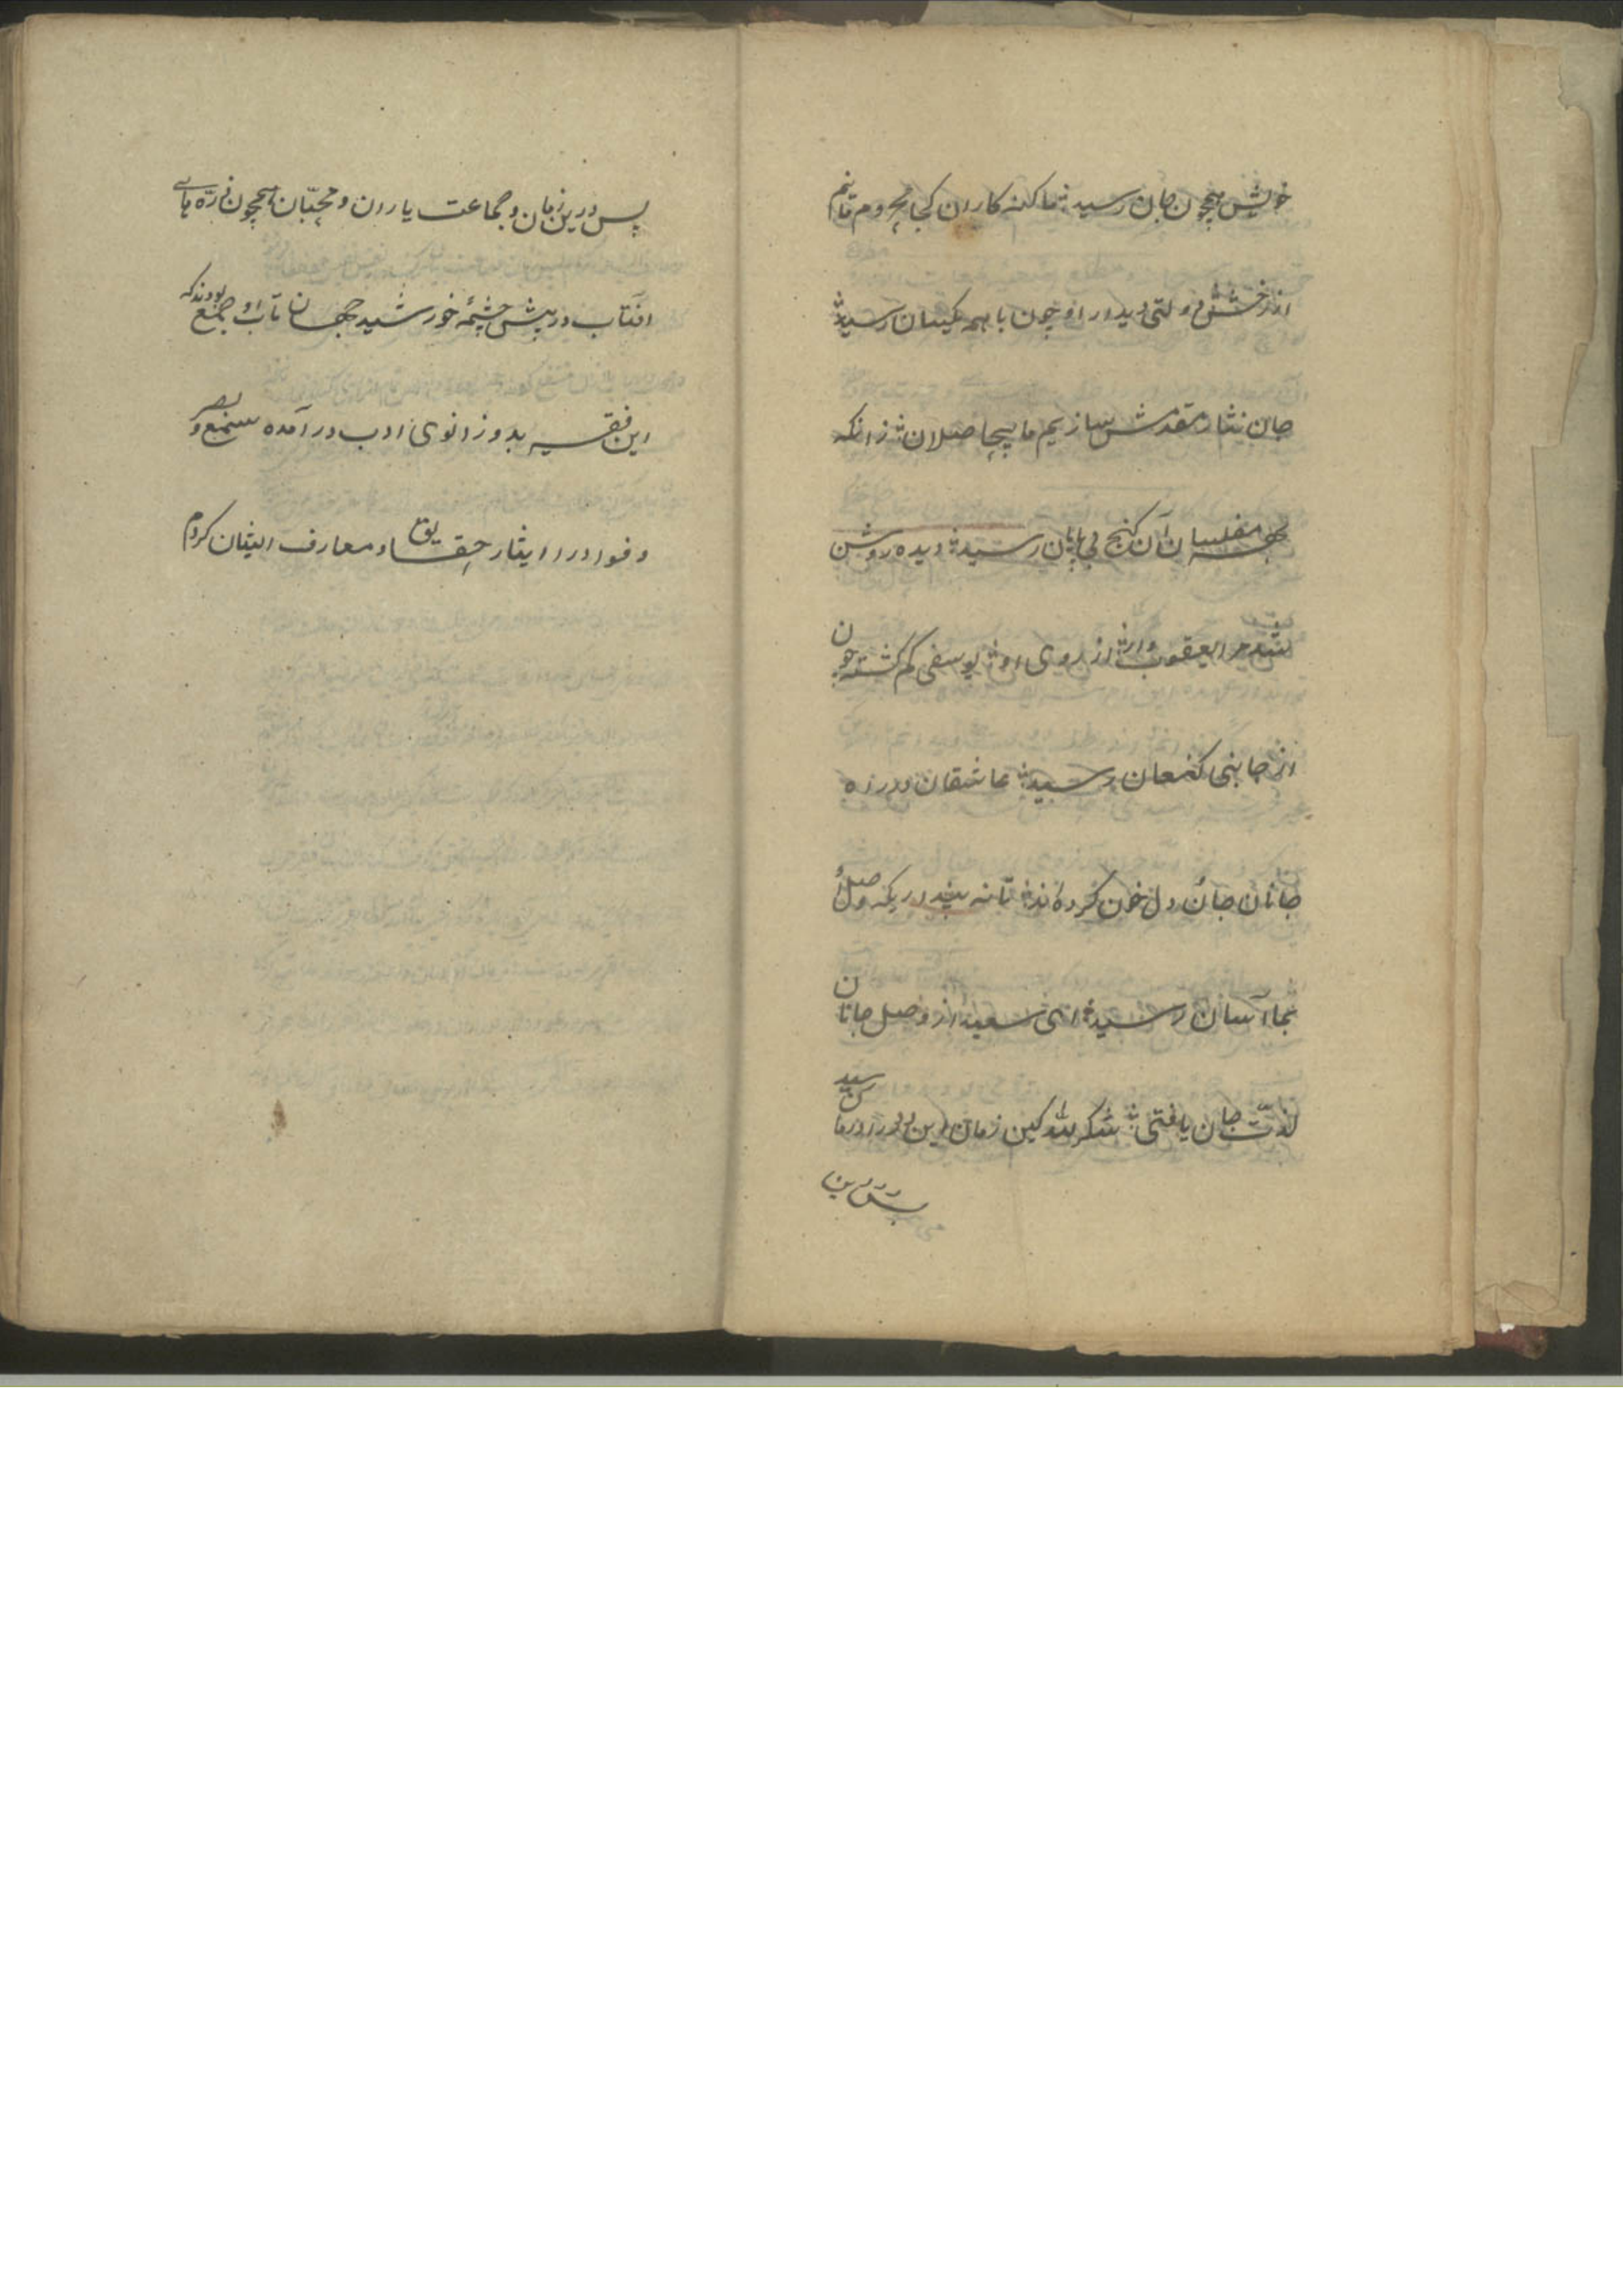 خوش همچون جان رسید ؞ ما کنه کاران کجا محروم مانیم
از رخش ؞ دولتی دیدار او چون با همه یکسان رسید ؞
جان نثار مقدمش سازیم ما بیحاصلان ؞ زانکه
بهر مفلسان آن کنج بی پایان رسید ؞ دیده روشن
شد مرا یعقوب وار ؞ از روی او ؞ یوسفی کم کشته چون
از جانب کنعان رسید ؞ عاشقان در راه
جانان جان و دل خون کرده اند ؞ تا نه پنداریکه وصل او
بما آسان رسید ؞ ای سعید از وصل جانان
لذّت جان یافتی ؞ شکر لله کین زمان این درد را درمان رسید
پس درین
پس درین زمان و جماعت یاران و محبّان همچون ذرّه های
افتاب در پیش چشمهٔ خورشید جهان تاب او جمع بودند که
این فقیر بدو زانوی ادب درآمده سمع و بصر
و فواد را ایثار حقایق و معارف ایشان کردم